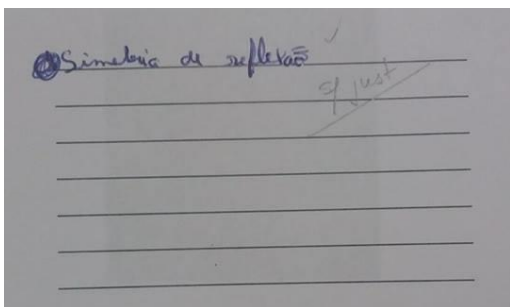 Simetria de reflexão
s/ just